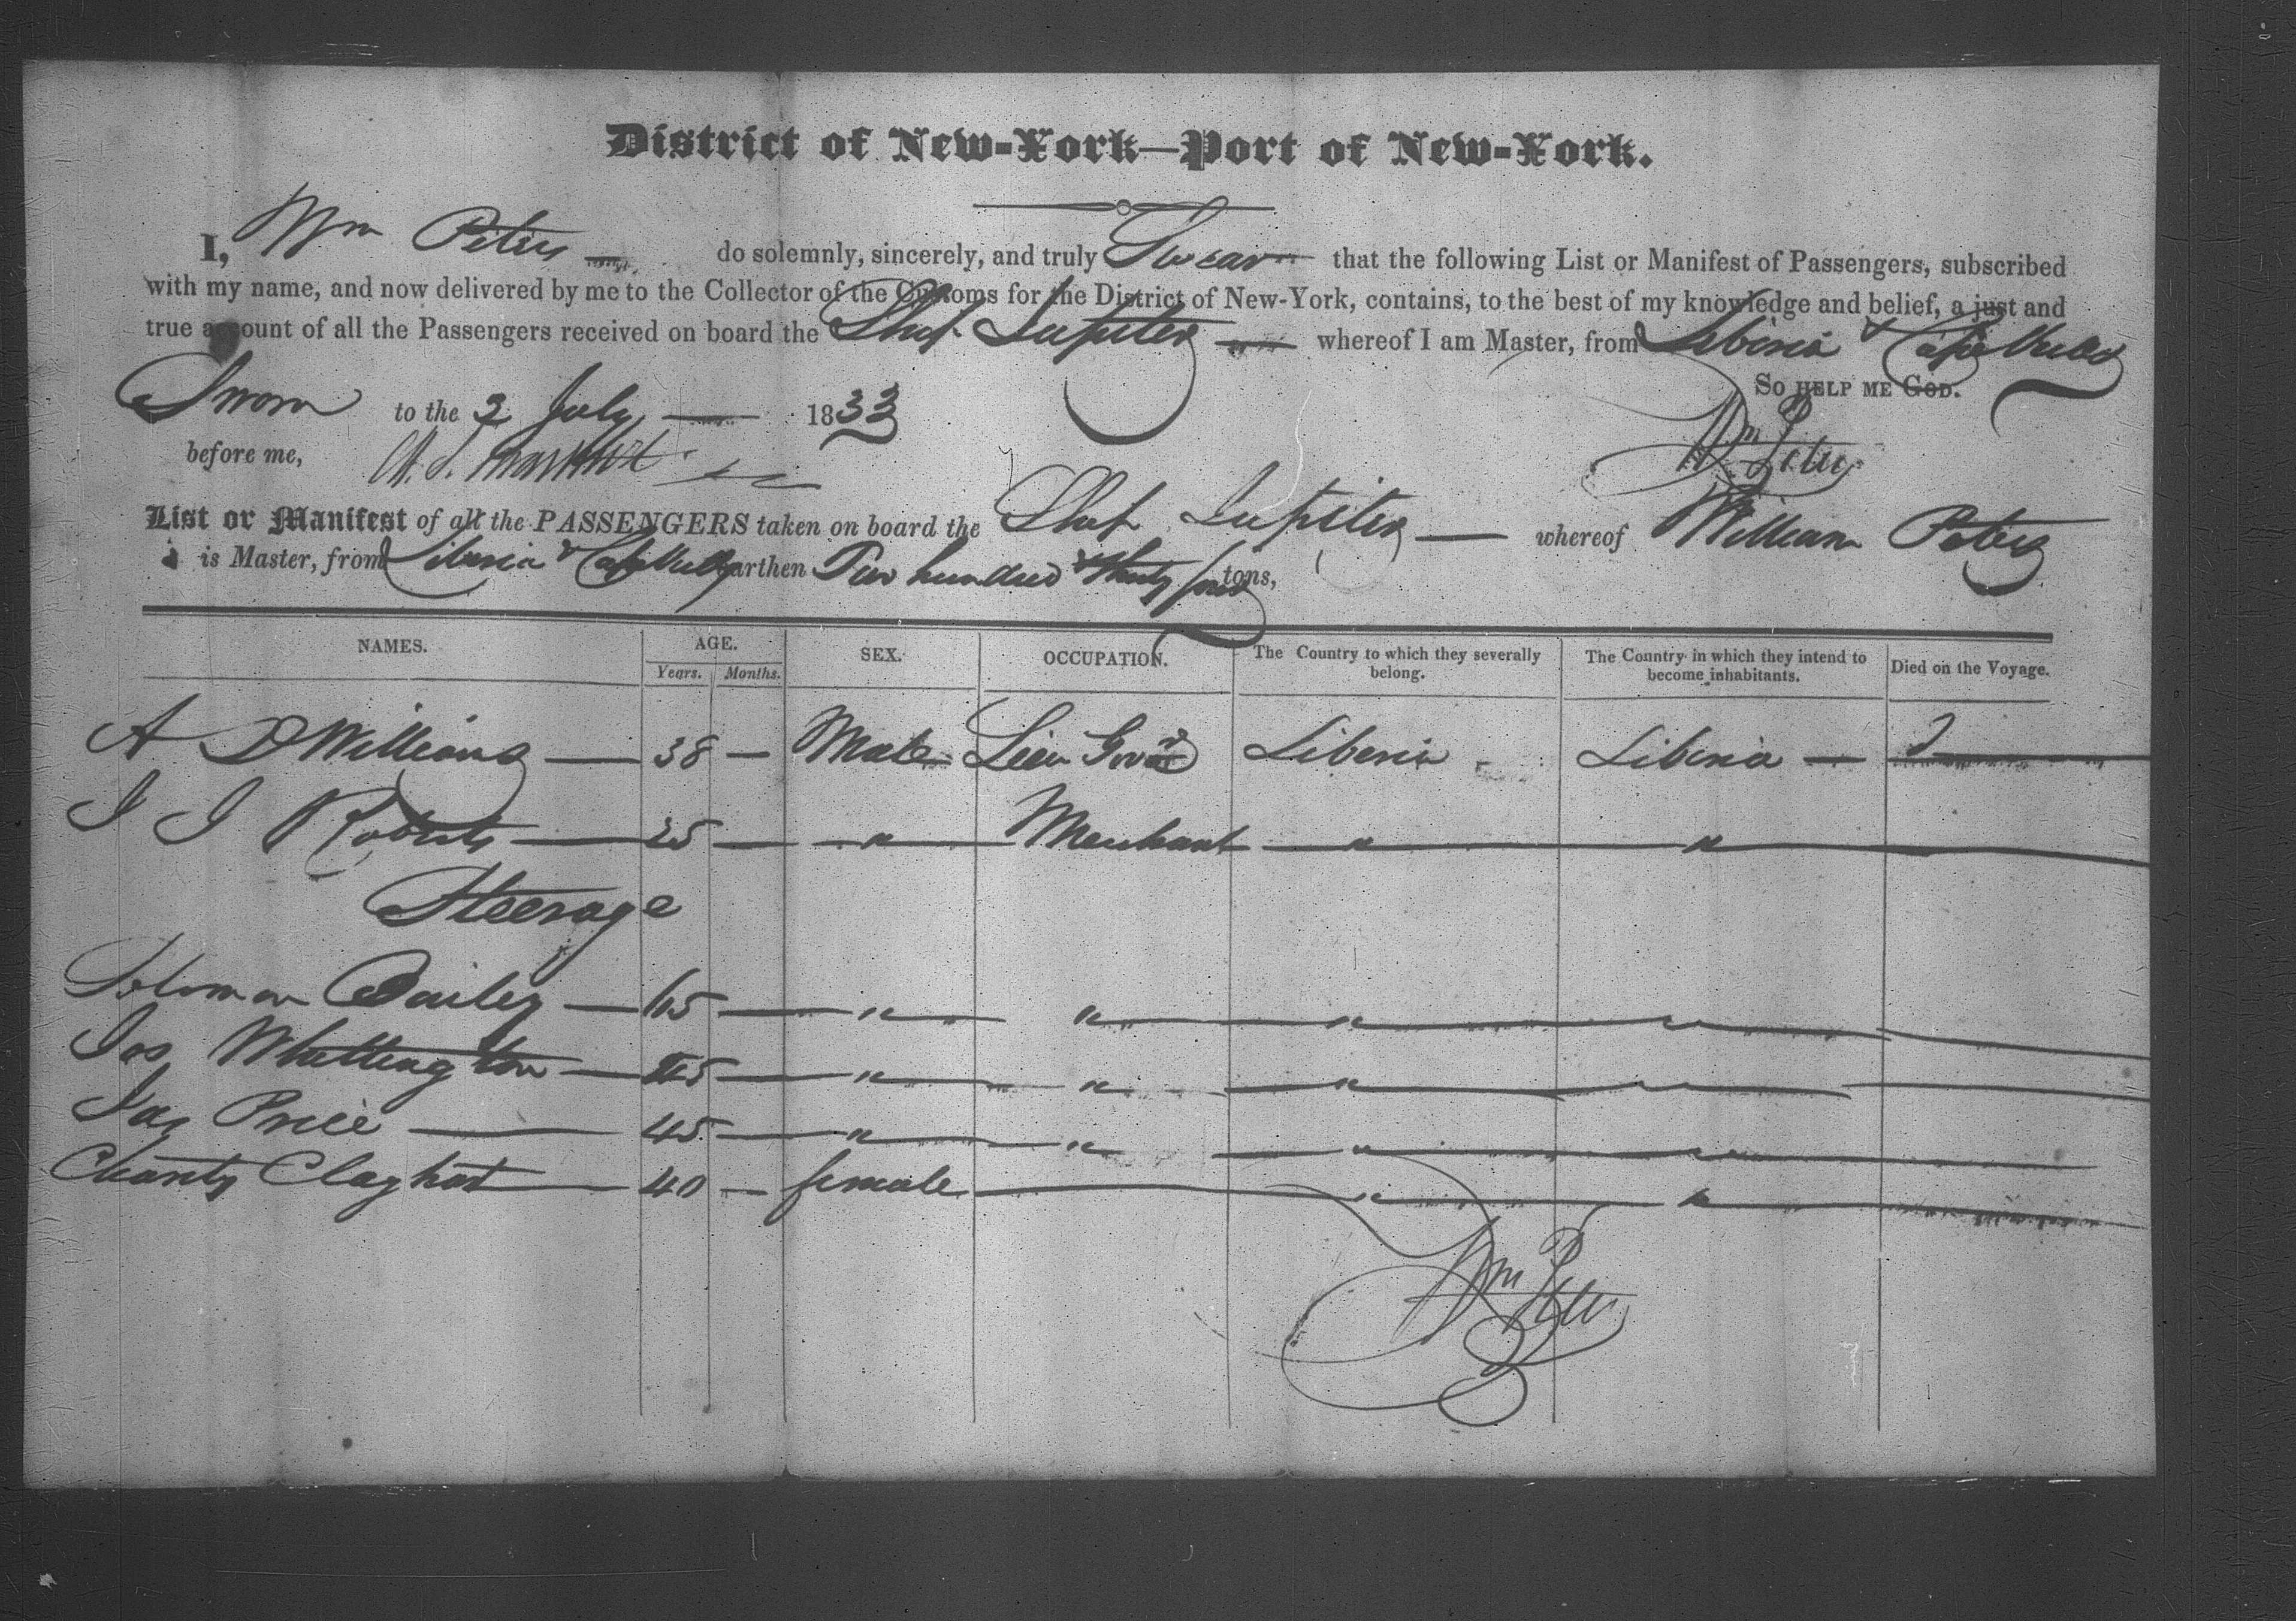 District of New-York—Port of New-York.
I, Wm Peters — do solemnly, sincerely, and truly Swear that the following List or Manifest of Passengers, subscribed
with my name, and now delivered by me to the Collector of the Customs for the District of New-York, contains, to the best of my knowledge and belief, a just and
true account of all the Passengers received on board the Ship Jupiter — whereof I am Master, from Liberia & Cape Verds
So help me God.
Sworn to the 2 July — 1833
Wm Peters
before me,
List or Manifest of all the PASSENGERS taken on board the Ship Jupiter — whereof William Peters
is Master, from Liberia & Cape Verds burthen Two hundred & thirty four tons,
NAMES. AGE. SEX. OCCUPATION. The Country to which they severally belong. The Country in which they intend to become inhabitants. Died on the Voyage.
Years. Months.
A D Williams — 38 — Male Lieu Govr Liberia Liberia —
J J Roberts — 25 — " Merchant — " — " —
Steerage
Soloman Bailey — 65 — " " — " — " —
Jas Whittington — — " — " — " — " —
Jas Price — 45 — " — " — " — " —
Charity Claghorn — 40 — female — " — " —
Wm Peters